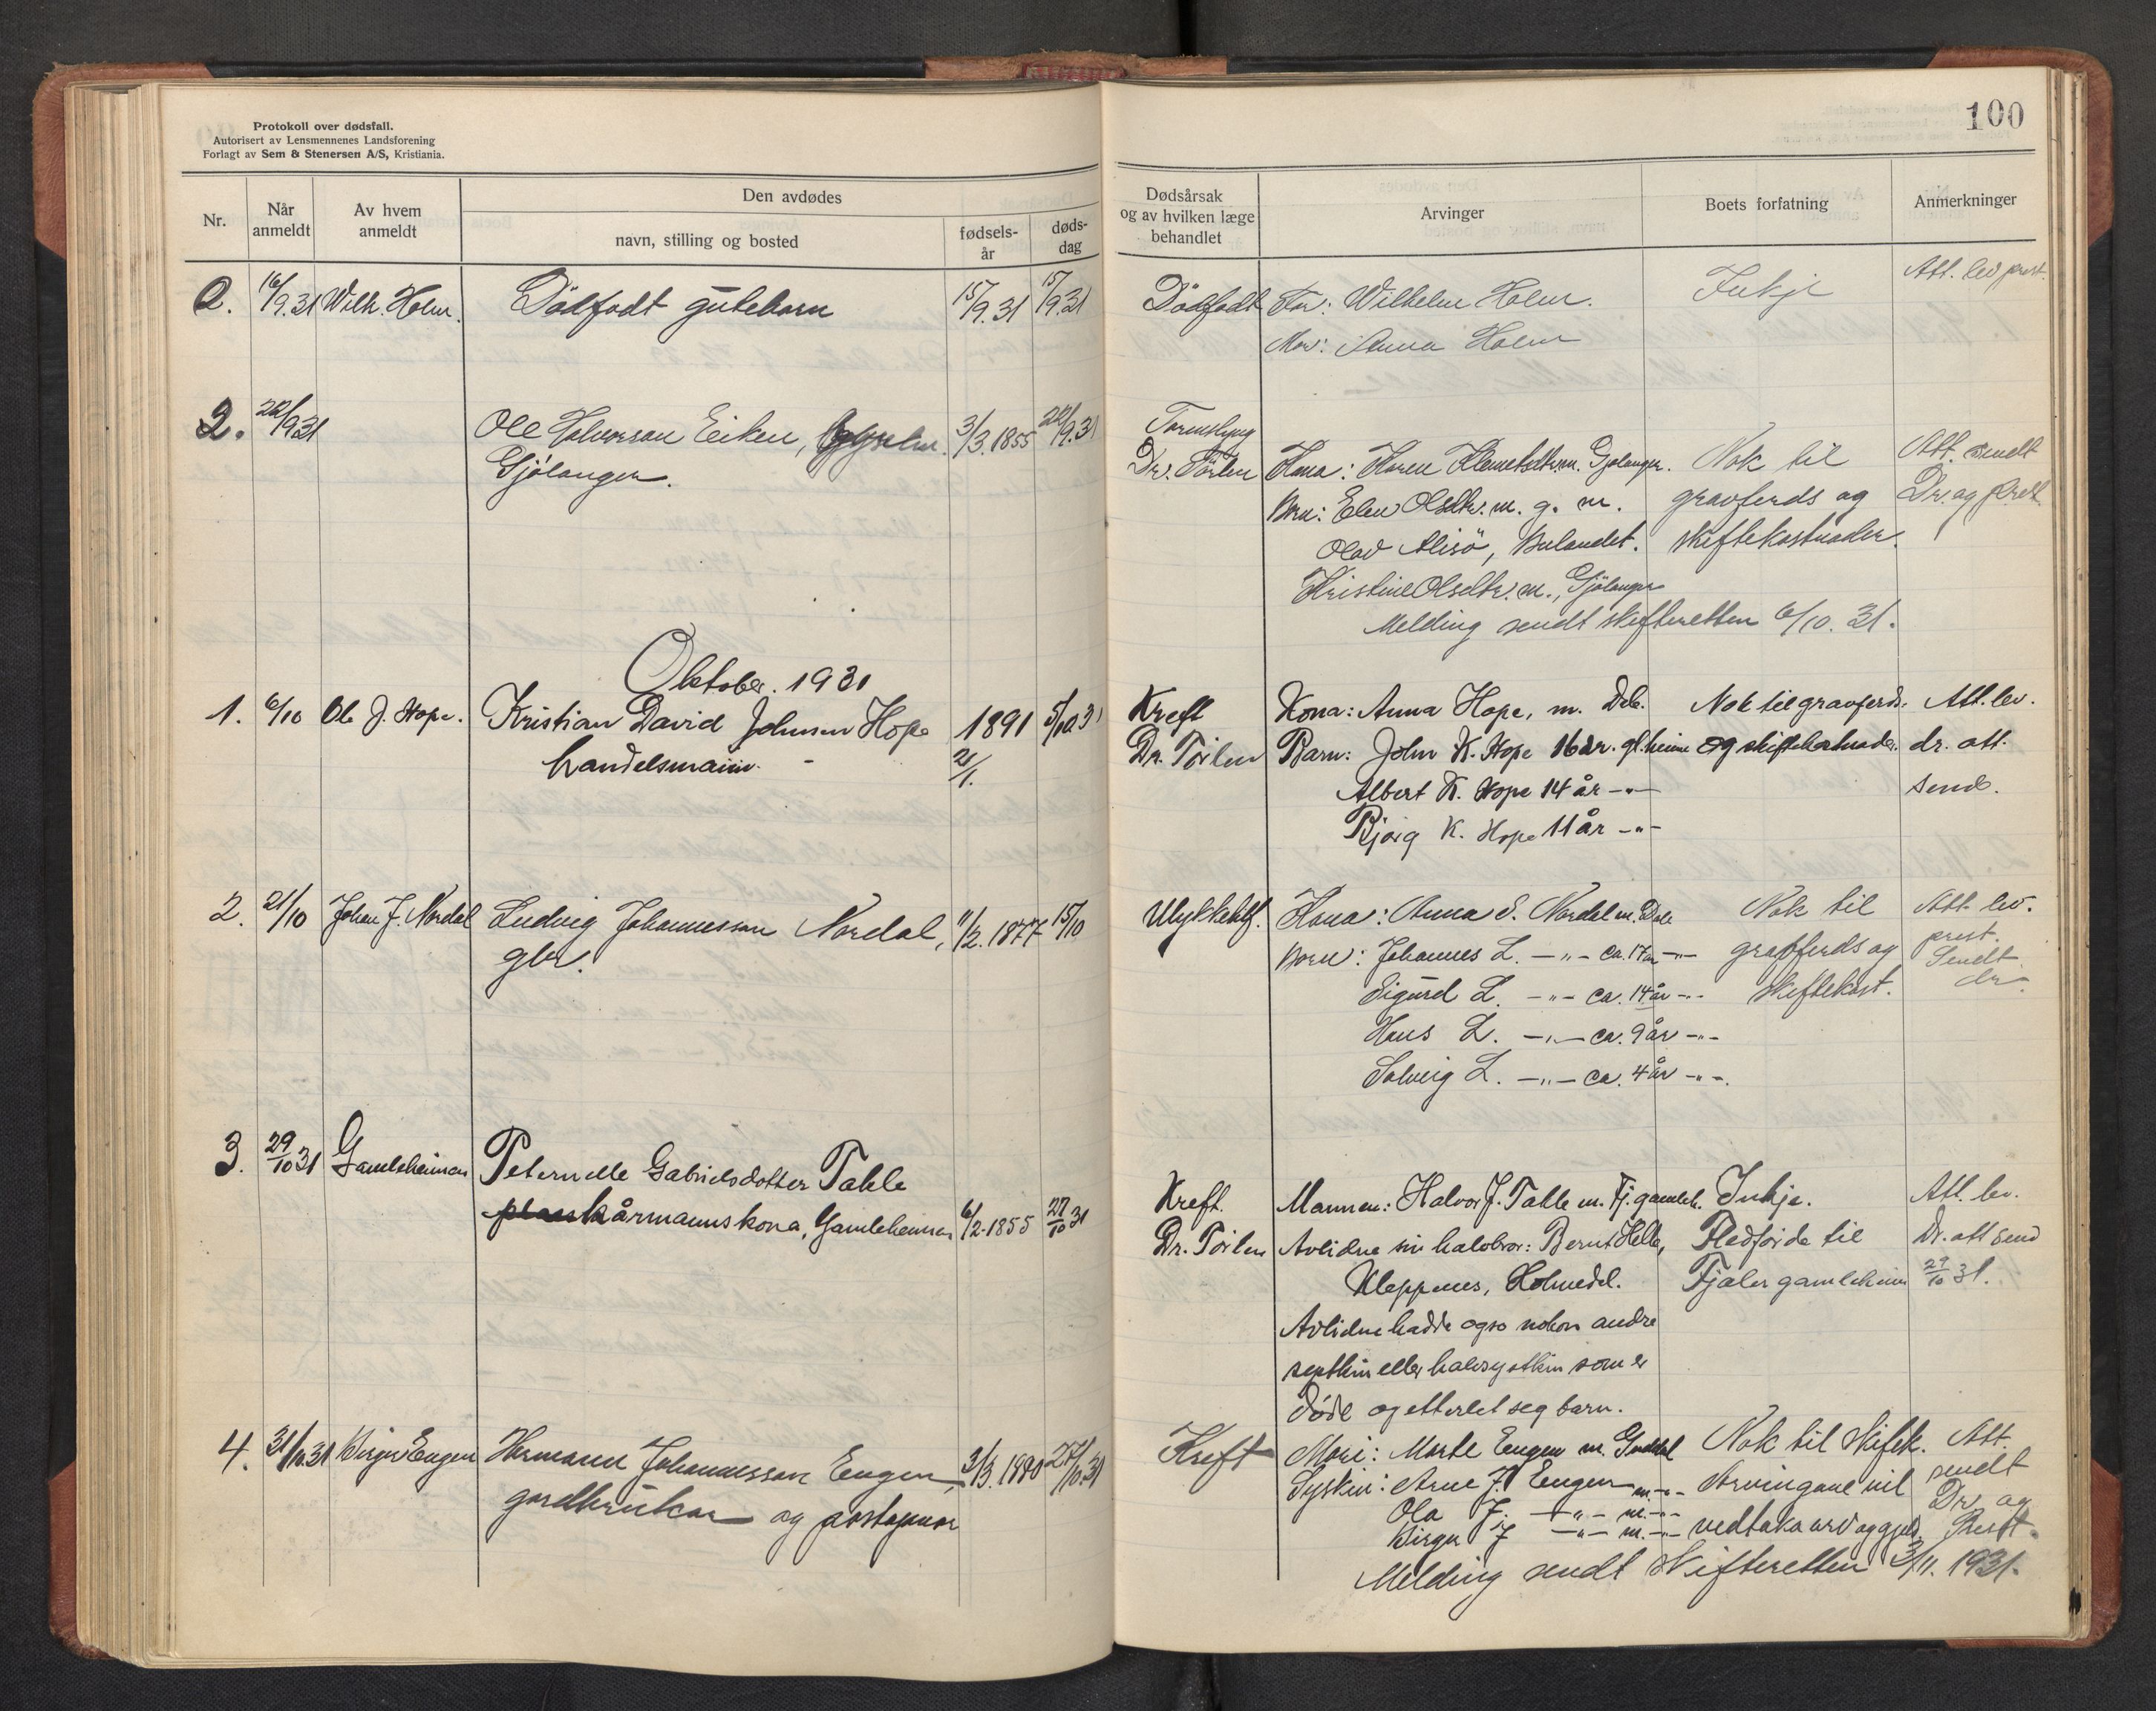 Protokoll over dødsfall.
Autorisert av Lensmennenes Landsforening
Forlagt av Sem & Stenersen A/S, Kristiania.
Nr.
Når anmeldt
Av hvem anmeldt
Den avdødes
navn, stilling og bosted
fødsels-
år
døds-
dag
2. 16/9.31 Wilh. Holm. Dödfödt gutebarn 15/9.31 15/9.31
2. 22/9 31 Ole Halvorson Eiken, 3/3.1855 22/9.31
Gjölanger.
Oktober. 1931
1. 6/10 Ole J. Hope. Kristian David Johnsen Hope 1891 5/10.31
handelsmann. 2/1.
2. 21/10 Johan J. Nordal Ludvig Johannesson Nordal, 11/2.1877 15/10
gbr.
3. 29/10 31 Gamleheimen Peternelle Gabrielsdotter Takle
kårmannskona, Gamleheimen 6/2-1855 27/10 31
4. 31/10.31 Birger Engen Hermann Johannesson Eengen, 3/3.1890 27/10.31
gardbrukar og postopnar
100
Dødsårsak
og av hvilken læge
behandlet
Arvinger
Boets forfatning
Anmerkninger
Dödfödt Far: Wilhelm Holm. Inkje Att. lev prest.
Mor: Anna Holm
Dr. Törlen Kona: Karen Klemetsdtr. m. Gjölanger. Nok til Att. sendt
Born: Elen Olsdtr. m. g. m. gravferds og Dr. og prest
Olav Alisö, Bulandet. skiftekostnader.
Kristine Olsdtr. m., Gjölanger
Melding sendt skifteretten 6/10. 31.
Kreft Kona: Anna Hope, m. Dale. Nok til gravferds. Att. lev.
Dr. Törlen Barn: John K. Hope 16 år. gl. heime og skiftekostnader. dr. att.
Albert K. Hope 14 år -"- send.
Bjørg K. Hope 11 år -"-
Ulykkestilf. Kona: Anna S. Nordal m. Dale Nok til Att. lev.
Born: Johannes L. -"- ca. 17 år -"- gravferds og prest.
Sigurd L. -"- ca. 14 år -"- skiftekost. Sendt dr.
Hans L. -"- ca. 9 år -"-
Solveig L. -"- ca. 4 år -"-.
Kreft. Mannen: Halvor J. Takle m. Fj. gamleh. Inkje. Att. lev.
Dr. Törlen Avlidne sin halvbror: Bernt Helle, Fledförde til Dr. att send
Kleppenes, Holmedal. Fjaler gamleheim 29/10 31.
Avlidne hadde ogso nokon andre
systkin eller halvsystkin som er
döde og etterlet seg barn.
Kreft Mori: Marte Eengen m. Guddal Nok til skiftek. Att.
Syskin: Arne J. Eengen m. -"- Arvingane vil sendt
Ola J. -"- m. -"- Dr. og
Birger J -"- m. -"- vedtaka arv og gjeld. Prest.
Melding sendt skifteretten 3/11. 1931.